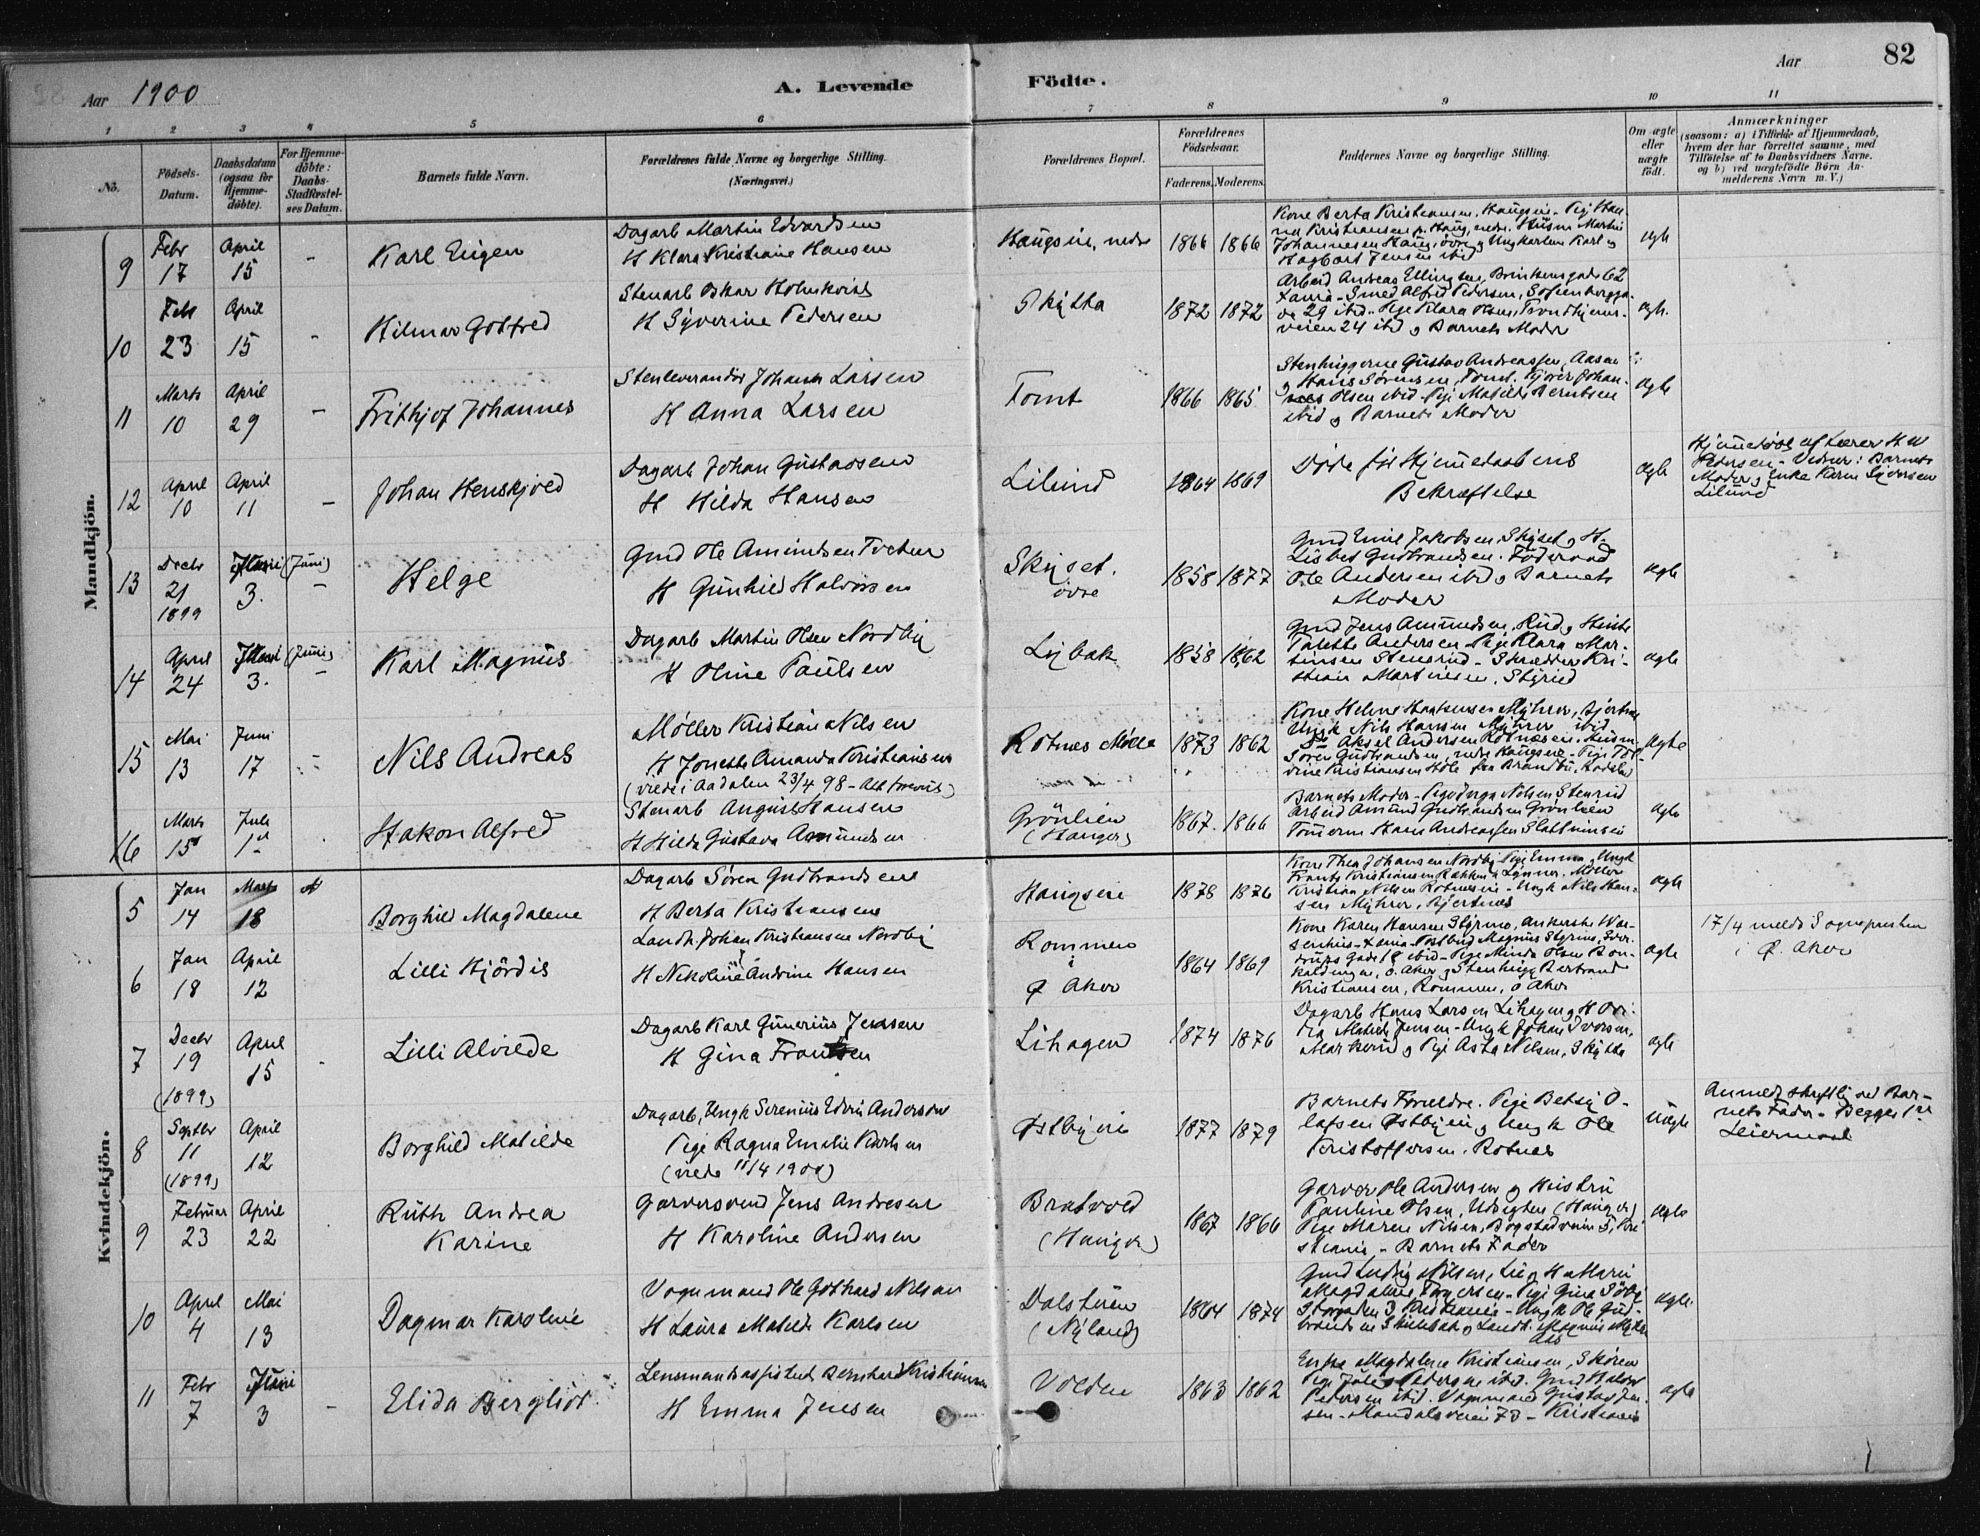 82
Aar 1900
A. Levende
Födte.
Aar
1 2 3 4 5 6 7 8 9 10 11
No.
Födsels-Datum.
Daabsdatum (ogsaa for Hjemme-döbte).
For Hjemme-döbte: Daabs-Stadfæstel-ses Datum.
Barnets fulde Navn.
Forældrenes fulde Navne og borgerlige Stilling.
(Næringsvei.)
Forældrenes Bopæl.
Forældrenes Födselsaar.
Faderens. Moderens.
Faddernes Navne og borgerlige Stilling.
Om ægte eller uægte födt.
Anmærkninger
(saasom: a) i Tilfælde af Hjemmedaab, hvem der har forrettet samme, med Tilföielse af to Daabsvidners Navne, og b) ved uægtefödte Börn An-melderens Navn m. V.)
Mandkjön.
9 Febr 17 April 15 - Karl Eugen
Dagarb Martin Edvardsen
H Klara Kristiane Hansen
Haugsin, nedre 1866 1866
Kone Berta Kristiansen, Haugsin
Johannesen Haug, övre
ibid
ægte
10 Febr 23 April 15 - Hilmar Gotfred
Stenarb Oskar Holmkvist
H Syverine Pedersen
Skytta 1872 1872
Arbeid Andreas Ellingsen, Brinkensgade 62
Xania - Smed Alfred Pedersen, Sofienbergga-
de 29 ibid - Pige Klara Olsen, Trondhjems-
veien 24 ibid og Barnets Moder
ægte
11 Marts 10 April 29 - Frithjof Johannes
Stenleverandör Johann Larsen
H Anna Larsen
Tomt 1866 1865
Stenhuggerne Gustav Andreassen, Aasen
og Hans Sörensen, Tomt.
Olsen ibid - Pige Matilde Berntsen
ibid og Barnets Moder
ægte
12 April 10 April 11 - Johan Henskjold
Dagarb Johan Gustavsen
H Hilda Hansen
Lilund 1864 1869
Døde för Hjemmedaabens
Bekræftelse
ægte
Hjemmedöbt af Lærer H W
Pedersen - Vidner: Barnets
Moder og Enke Karen Syversen
Lilund
13 Decbr 21 1899 (Juni) 3. - Helge
Gmd Ole Amundsen Tveter
H Gunhild Halvorsen
Skyset. övre 1858 1877
Gmd Emil Jakobsen Skyset og H.
Lisbet Gudbrandsen. Föderaad
Ole Andersen ibid og Barnets
Moder
ægte
14 April 24 (Juni) 3. - Karl Magnus
Dagarb Martin Olsen Nordby
H Oline Paulsen
Lybæk 1858 1862
Gmd Jens Amundsen, Rud og Hustr
Andersen - Pige Klara Mar-
tinsen Stensrud - Skrædder Kri-
stian Martinsen,
ægte
15 Mai 13 Juni 17 Nils Andreas
Møller Kristian Nilsen
H Jonette Amanda Kristiansen
(viede i Aadalen 23/4 98 -
Rotnes Mölle 1873 1862
Kone Helene
Ungk Nils Hansen Myhrer ibid
Aksel Andersen Rotnes
Sören Gudbrandsen, nedre Haugsin
Kristiansen
ægte
16 Marts 15 Juli 1st Hakon Alfred
Stenarb August Hansen
H Hilda Gustava Amundsen
Grönlien (Hauger) 1867. 1866
Barnets Moder - Pige Berga Nilsen Stensrud
Arbeid Amund Gudbrandsen Grönlien
Tömmerm Hans Andreassen
ægte
Kvindekjön.
5 Jan 14 Marts 18 Borghild Magdalene
Dagarb Sören Gudbrandsen
H Berta Kristiansen
Haugsin 1878 1876
Kone Thea Johansen Nordby Pige Emma og Ungk
Frants Kristiansen
Kristian Nilsen Rotnes - Ungk Nils Han-
sen Myhrer,
ægte
6 Jan 18 April 12 Lilli Hjördis
Landh. Johan Kristiansen Nordby
H Nekoline Andrine Hansen
Rommen i Ø Aker 1864 1869
Kone Karen Hansen
Pige Minda Olsen
Kristiansen, Rommen, Ø Aker
ægte
17/4 meldt Sognepresten
i Ø. Aker
7 Decbr 19 (1899) April 15 - Lilli Alvilde
Dagarb Karl Gunerius Jensen
H Gina Frantsen
Lihagen 1874 1876
Dagarb Hans Larsen Lihagen og H
Matilde Jensen - Ungk Johan Iversen,
Markerud og Pige Asta Nilsen, Skytta
ægte
8 Septbr 11 (1899) April 12 Borghild Matilde
Dagarb, Ungk Serenius Edvin Andersen
Pige Ragna Emelie Karlsen
(viede 11/4 1900)
Østbyeie 1877 1879
Barnets Forældre. Pige Betsy O-
lafsen Østbyeie og Ungk Ole
Kristoffersen. Rotnes
Uægte
Anmeldt skriftlig ved Bar-
nets Fader - Begges 1st
Leiermaal
9 Februar 23 April 22 Ruth Andrea
Karine
Garversvend Jens Andresen
H Karoline Andersen
Bratvold
(Hauger) 1867 1866
Garver Ole Andersen og Hustru
Pauline Olsen, Udsigten (Hauger)
Pige Maren Nilsen, Bogstadveien 5, Kri-
stiania, - Barnets Fader
ægte
10 April 4 Mai 13 Dagmar Karoline
Vognmand Ole Gothard Nilsen
H Laura Matilde Karlsen
Dalstuen
(Nyland) 1864 1874
Gmd Ludvig Nilsen, Lie og H Marie
Magdalene Torgersen - Pige Gina
Storgaden 3 Kristiania - Ungk Ole Gud-
brandsen Skillebæk og Landh. Magnus
ægte
11 Febr 7 Juni 3 - Elida Bergliot
Lensmandsassistent Bernhard Kristiansen
H Emma Jensen
Volden 1863 1862
Enke Magdalene Kristiansen, Skøien
Pige Julie Pedersen ibid. Gmd Halvor
Pedersen ibid. Vognmand Gustav Jen-
sen - Mandalsveien 73 - Kristiania
ægte